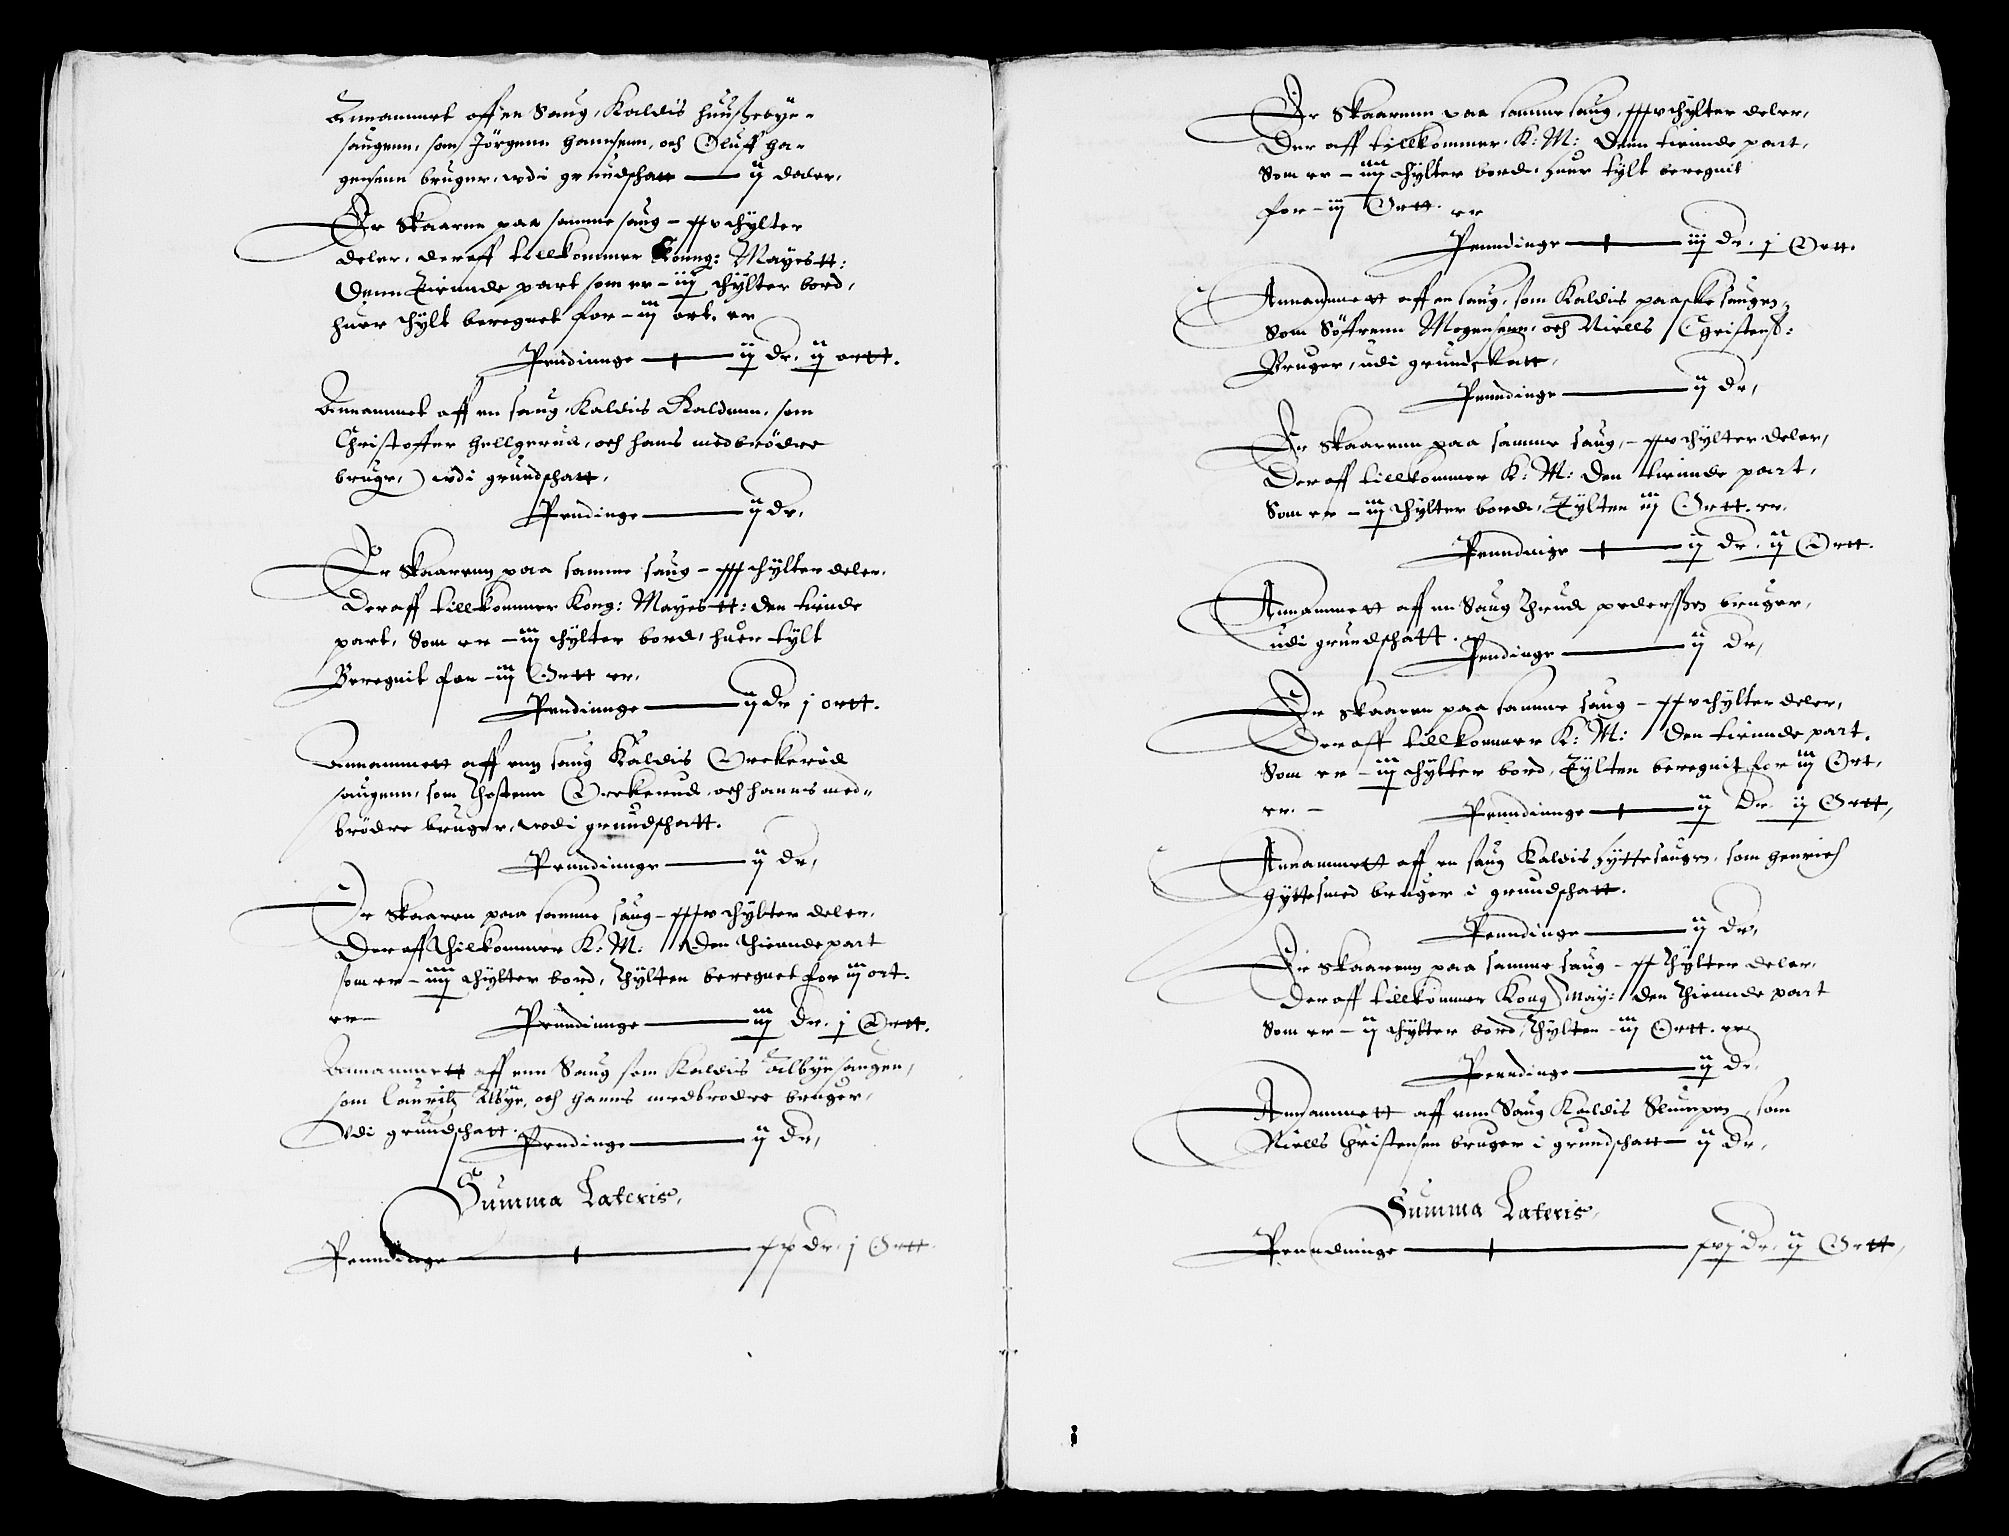 Annammet aff en Saug, Kaldis Huusebÿe-
saugenn, som Jörgenn Hannsenn, och Oluff Ha-
gensenn bruger, wdi grundschatt — ij daler,
Er Skaarne paa samme saug — xxv thÿlter
deler, deraff tillkommer Konng: Mayestt:
Denn tiennde part som er — iij thÿlter bord,
huer thÿlt beregnet for — iij ort. er
Penndinnge — ij dr. ij ortt.
Annammet aff en saug, Kaldis Kaldenn, som
Christoffer Hellgerud, och hans medbrödre
bruge, wdi grundschatt,
Pendinge — ij dr,
Er Skaarenn paa samme saug — xxx thÿlter deler,
Deraff tillkommer Kong: Mayestt: den tiende
part, Som er — iij thÿlter bord, huer tÿlt
Beregnit for — iij Ortt er,
Pendinnge — ij dr j ortt.
Annammett aff enn saug Kaldis Orekerud
saugenn, som Thostenn Orekerud, och hanns med-
brödre bruger, wdi grundschatt.
Penndinnge — ij dr,
Er Skaaren paa samme saug — xxxv thÿlter deler,
Deraff Thilkommer K: M: Den thiennde part
som er — iiij thÿlter bord, thÿlten beregnet for iij ort.
er —
Pendinnge — iij dr. j Ortt.
Annammett aff enn Saug som Kaldis Albÿesaugen,
som Lauritz Albÿe, och hanns medbrodre bruger,
Vdi grundschatt.
Pendinge — ij dr,
Summa Lateris,
Penndinge — xx dr. j Ortt.
Er Skaarenn paa samme saug, xxxv thÿlter deler,
Der aff tillkommer K: M: Denn tiennde part,
Som er — iiij thÿlter bord, huer tÿlt beregnit
for — iij Ortt. er
Penndinge — iij dr. j Ortt.
Annammett aff en saug, som Kaldis paaske saugen,
Som Söffrenn Mogensenn, och Niells Christenß:
Bruger, udi grundskatt,
Penndinge — ij dr,
Er Skaarenn paa samme saug, — xxv thÿlter deler,
Der aff tillkommer K: M: den tiennde part,
Som er — iij thÿlter bord, Tÿlten iij Ortt. er,
Penndinge — ij dr. ij Ortt.
Annammett aff en Saug Thrud pederssen bruger,
udi grundschatt.
Pendinge — ij dr,
Er skaaren paa samme saug — xxv thÿlter deler,
Der aff tillkommer K: M: Den tiennde part.
Som er — iij thÿlter bord, Tÿlten beregnit for iij Ort,
er. —
Penndinnge — ij dr. ij Ortt,
Annammett aff en saug Kaldis hÿttesaugen, som Henrich
Hÿttesmed bruger i grundschatt.
Penndinge — ij dr,
Er Skaarenn paa samme saug — xx Thÿlter deler,
Der aff tillkommer Kong May: den thiennde part
Som er — ij thÿlter bord, Thÿlten — iij Ortt. er
Penndinge — ij dr.
Annammett aff enn Saug Kaldis Slumpen som
Niells Christensen bruger i grundschatt — ij dr,
Summa Lateris,
Penndninge — xvj dr. ij Ortt,